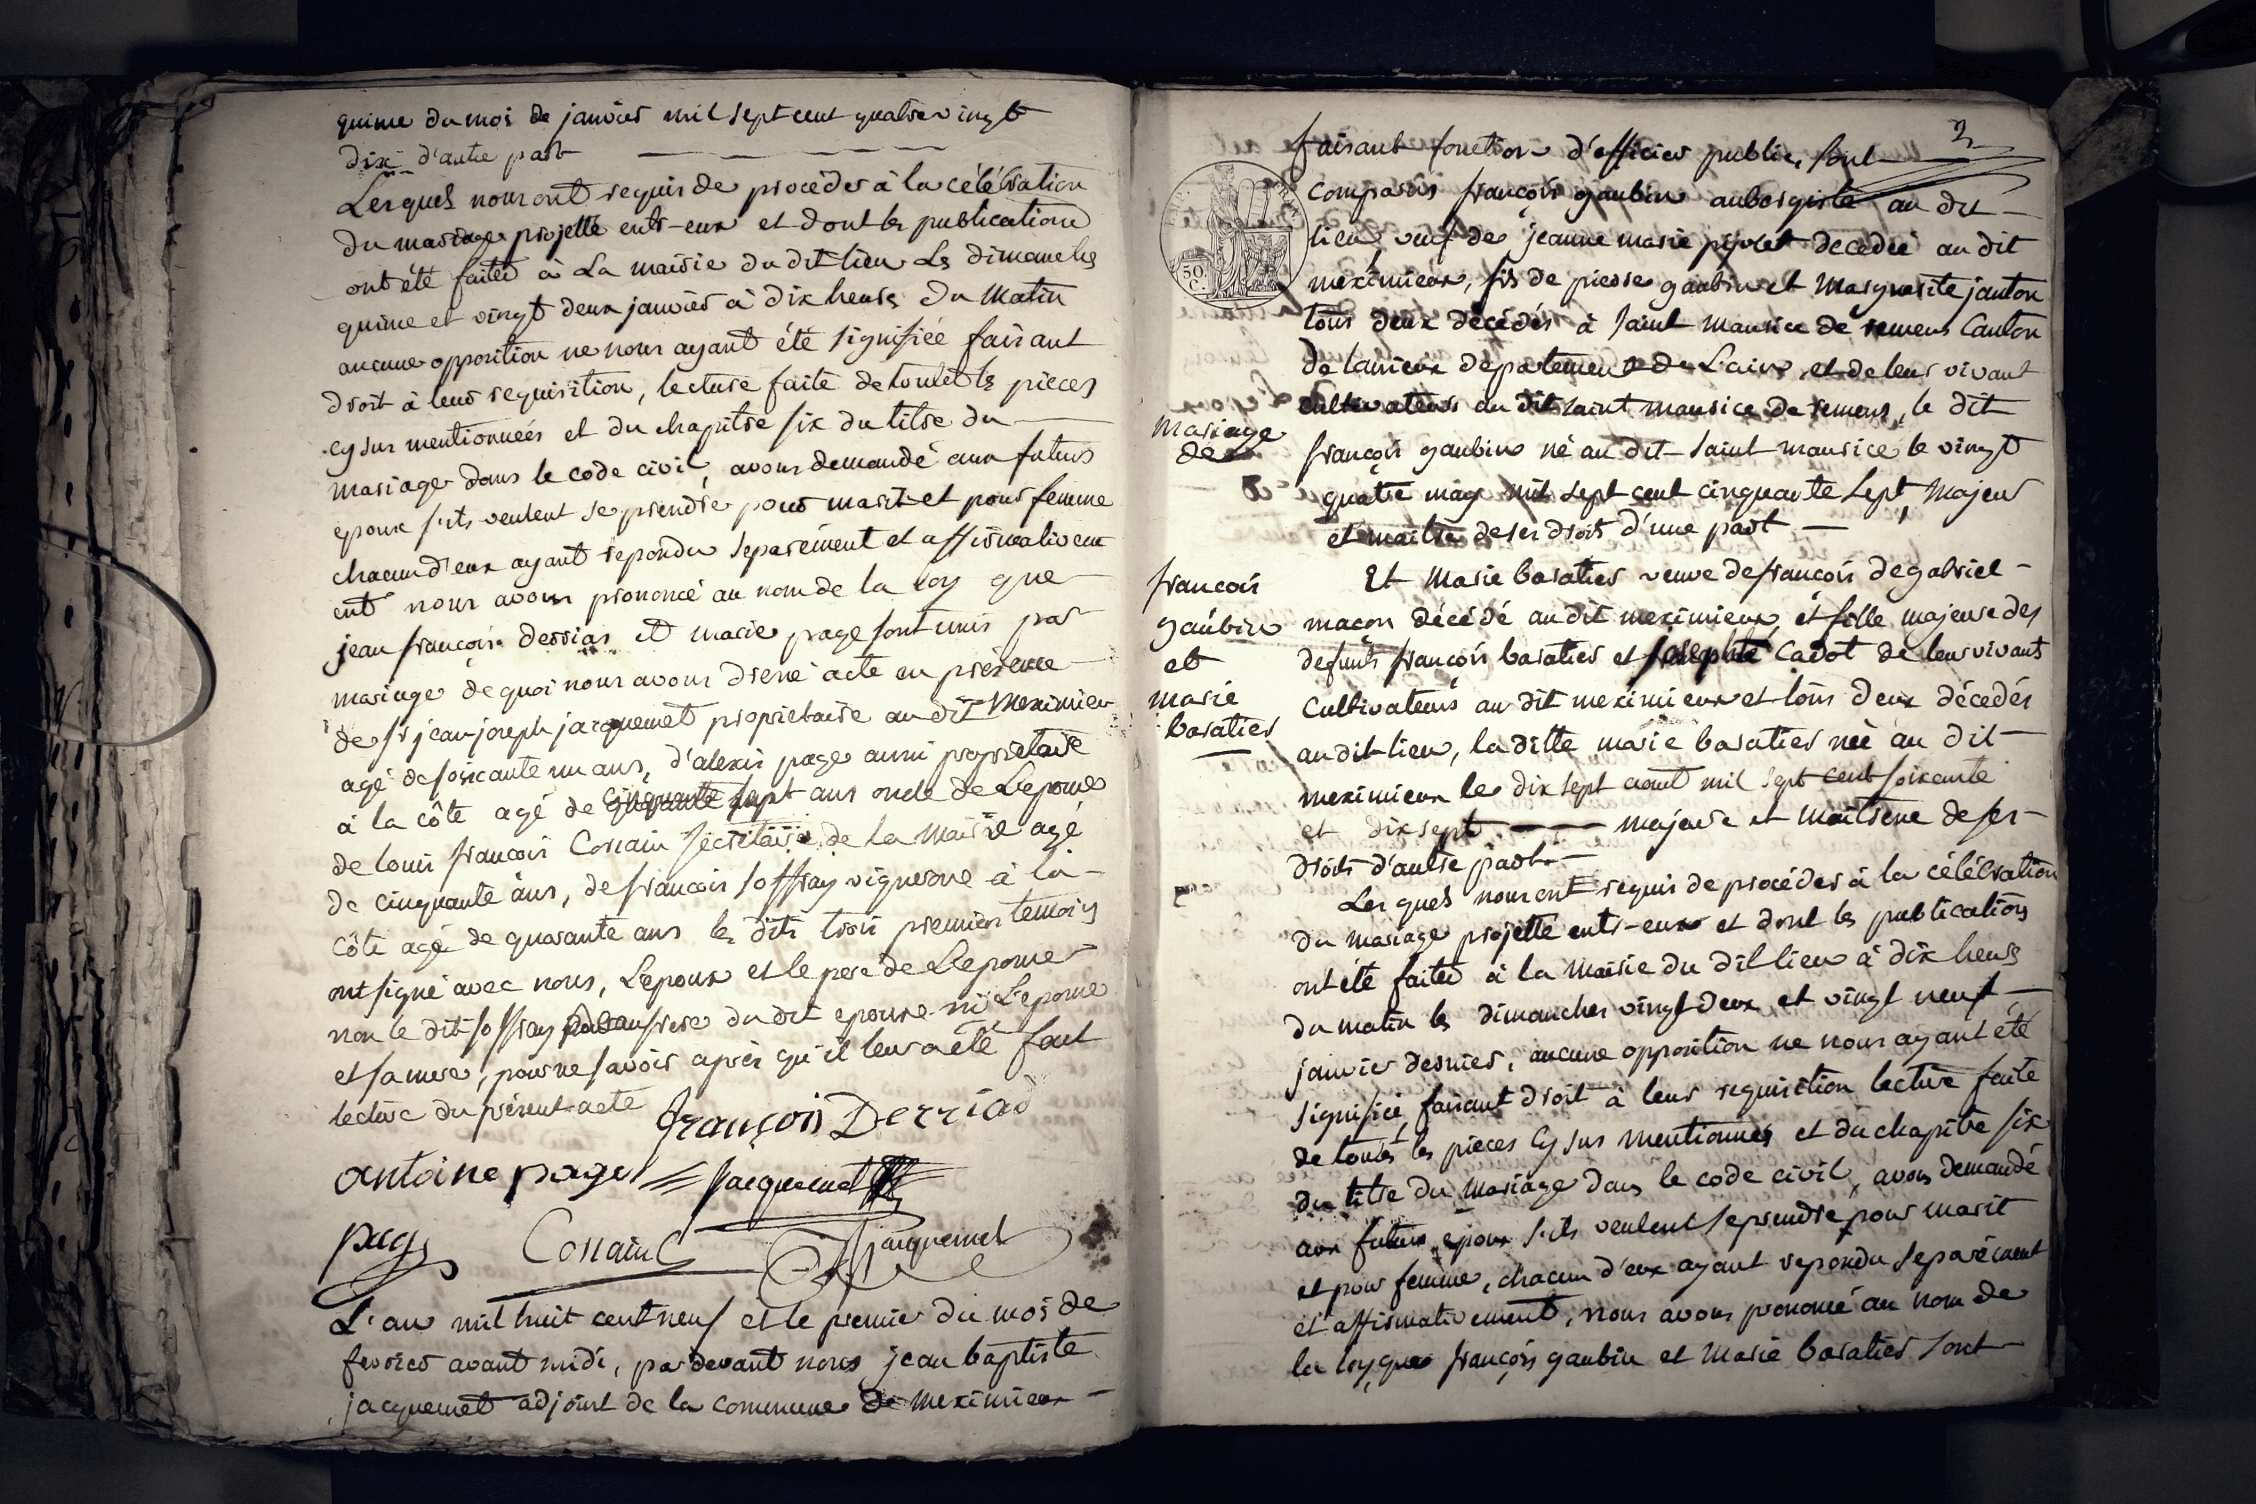 quinze du mois de janvier mil sept cent quatre vingt
dix d'autre part
Lesquels nous ont requis de procéder à la célébration
du mariage projetté entr-eux et dont les publications
ont été faites à La mairie du dit lieu Les dimanches
quinze et vingt deux janvier à dix heures du Matin
aucune opposition ne nous ayant été signifiée faisant
droit à leur requisition, lecture faite de toutes les pieces
cy sus mentionnées et du chapitre six du titre du
mariage dans le code civil, avons demandé aux futurs
epoux s'ils veulent se prendre pour marit et pour femme
chacun d'eux ayant repondu separément et affirmativem
ent nous avons prononcé au nom de la loy que
jean françois derrias et marie page sont unis par
mariage de quoi nous avons dressé acte en présence
de sr jean joseph jacquemet propriétaire au dit Meximieux
agé de soixante un ans, d'alexis page aussi propriétaire
à la côte agé de cinquante sept ans oncle de Lepouse
de louis françois Cossain Sécrétaire de la Mairie agé
de cinquante ans, de françois soffray vigneron à la
côte agé de quarante ans les dits trois premiers temoins
ont signé avec nous, Lepoux et le pere de Lepouse
non le dit soffray frere du dit epouxe ni L'epouse
et sa mere, pour ne savoir après qu'il leur a été fait
lecture du présent acte
françois Derriad
antoine page
Jacquemet
page
Cossain
Jacquemet
L'an mil huit cent neuf et le premier du mois de
fevrier avant midi, par devant nous jean baptiste
jacquemet adjoint de la commune de meximieux
2
faisant fonction d'officier public, sont
comparus françois gaubin aubergiste au dit
lieu, veuf de jeanne marie pivet decedée au dit
meximieux, fils de pierre gaubin et Marguerite janton
tous deux décédés à saint maurice de remens Canton
de lanieux departement de L'ain, et de leur vivant
cultivateurs au dit saint maurice de remens, le dit
françois gaubin né au dit saint maurice le vingt
quatre may mil sept cent cinquante sept, Majeur
et maitre de ses droits d'une part
Et Marie baratier veuve de françois degabriel
macon décédé au dit meximieux, et fille majeure des
defunts françois baratier et Cadot de leur vivants
Cultivateurs au dit meximieux et tous deux décedés
au dit lieu, la ditte marie baratier née au dit
meximieux le dix sept aout mil sept cent soixante
et dix sept majeure et Maitresse de ses
droits d'autre part
Lesquels nous ont requis de procéder à la célébration
du mariage projetté entr-eux et dont les publications
ont été faites à la Mairie du dit lieu à dix heures
du matin les dimanches vingt deux et vingt neuf
janvier dernier, aucune opposition ne nous ayant été
signifiée, faisant droit à leur requisition lecture faite
de toutes les pieces cy sus mentionnées et du chapitre six
du titre du Mariage dans le code civil, avons demandé
aux futurs epoux s'ils veulent se prendre pour marit
et pour femme, chacun d'eux ayant repondu separément
et affirmativement, nous avons prononcé au nom de
la loy que françois gaubin et Marie baratier sont
Mariage
de
françois
gaubin
et
marie
baratier
50
C.